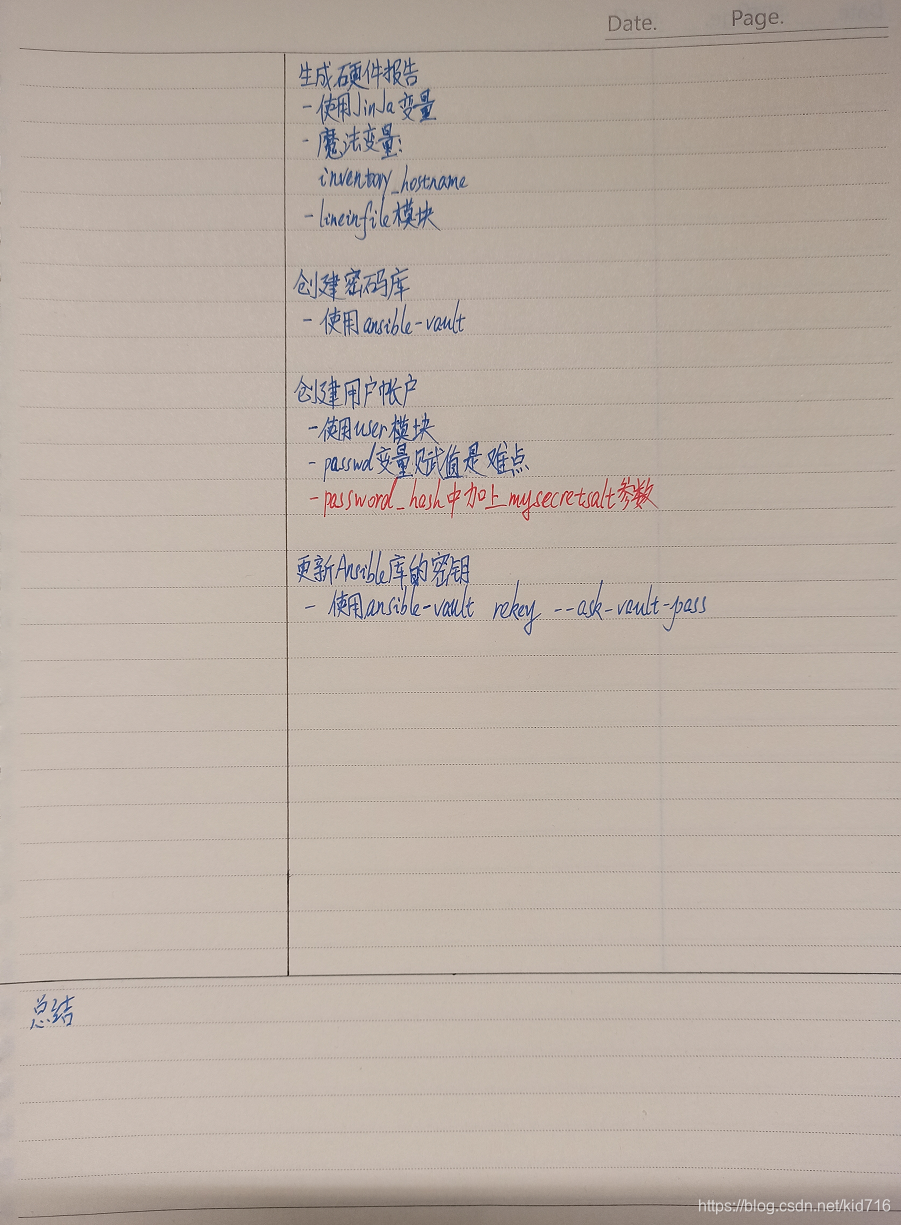 Date. Page.
生成硬件报告
- 使用JinJa变量
- 魔法变量:
inventory_hostname
- lineinfile模块
创建密码库
- 使用ansible-vault
创建用户帐户
- 使用user模块
- passwd变量赋值是难点
- password_hash中加上mysecretsalt参数
更新Ansible库的密钥
- 使用ansible-vault rekey --ask-vault-pass
总结
https://blog.csdn.net/kid716